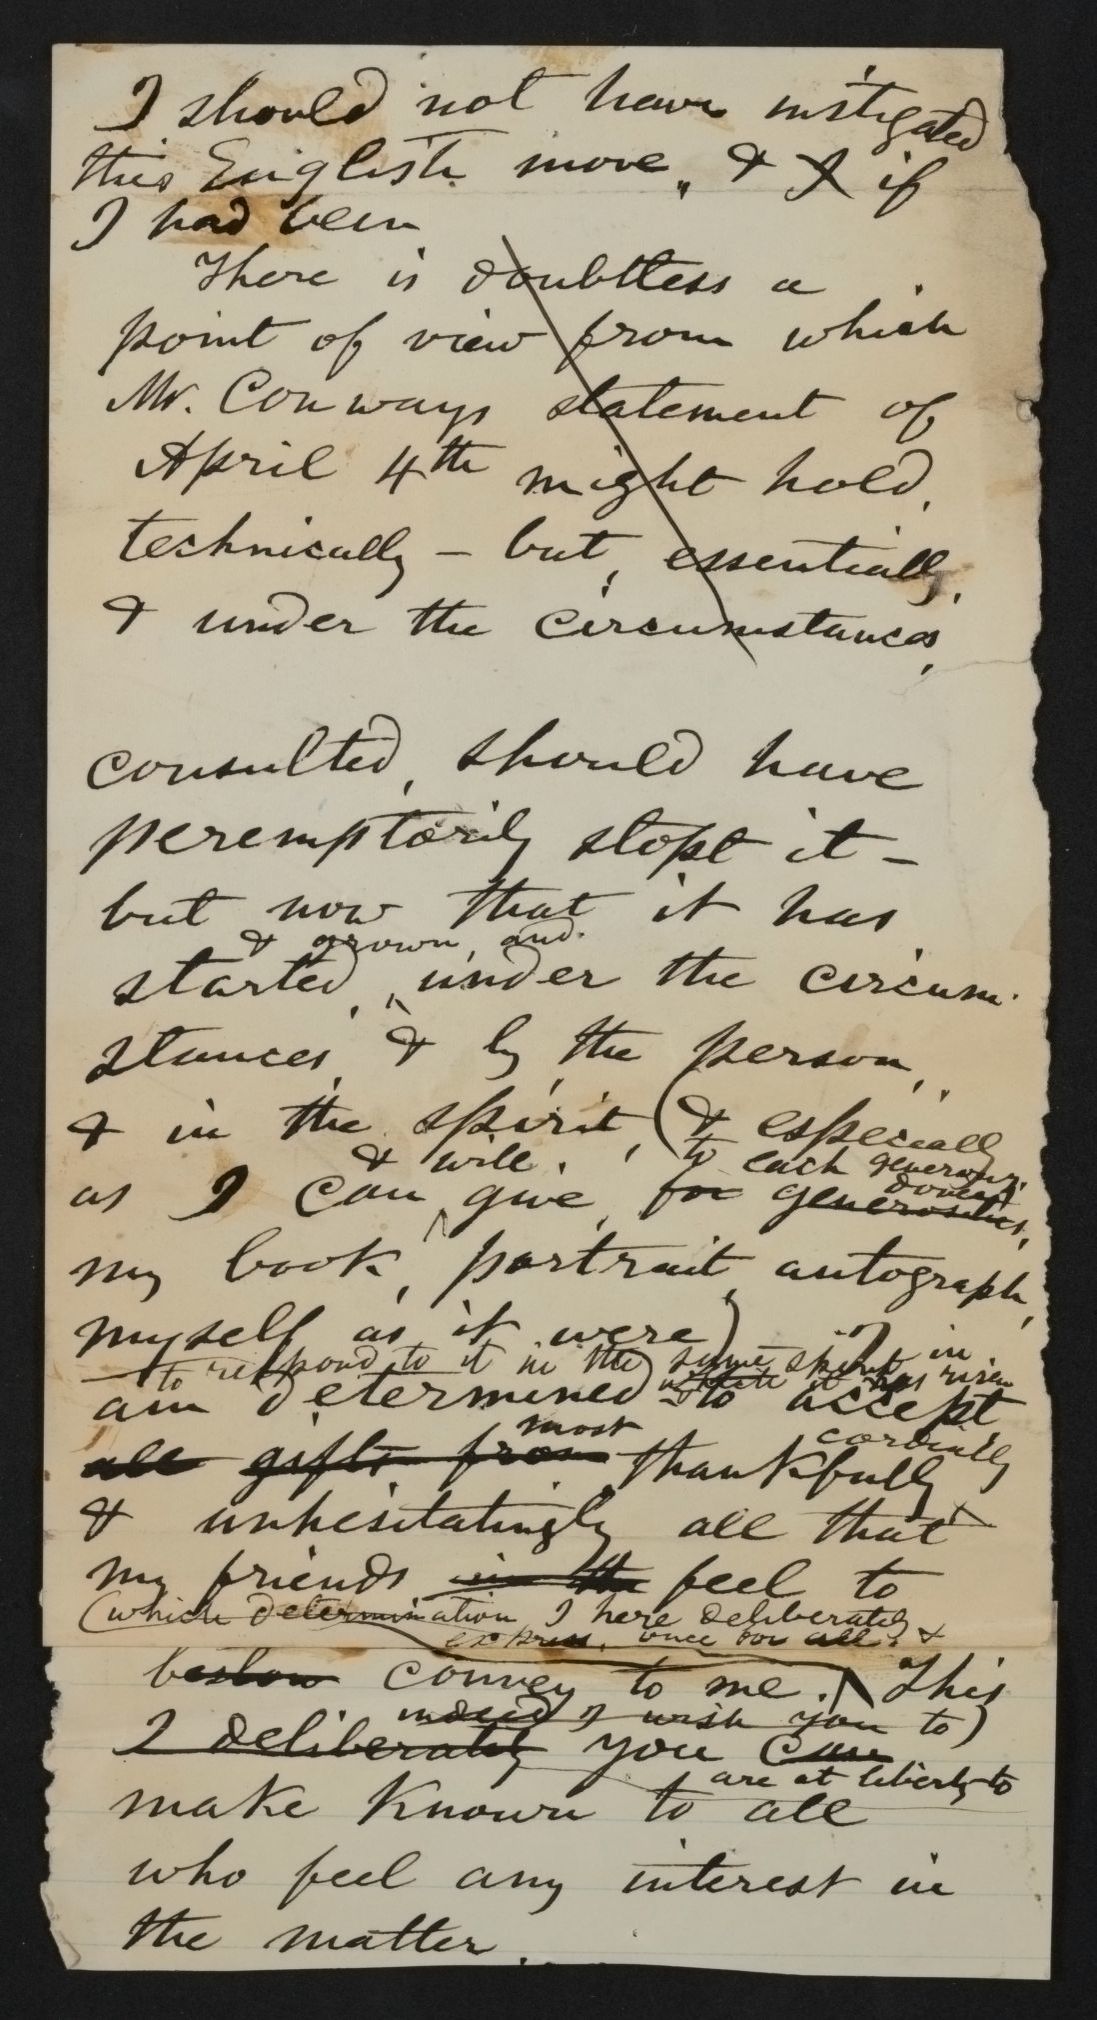 I should not have instigated
this English move, & I if
I had been
There is doubtless a
point of view from which
Mr. Conways statement of
April 4th might hold,
technically – but, essentially,
& under the circumstances,
consulted, should have
peremptorily stopt it –
but now that it has
& grown, and
started, under the circum-
stances, & by the person,
& in the spirit, (& especially
& will to each generous
donor
as I can give, for generosities,
my book, portrait, autograph,
myself as it were) I
to respond to it in the same spirit in
it has risen
am determined to accept
most cordially
all gifts from thankfully
& unhesitatingly all that
my friends in the feel to
(which determination I here deliberately
express, once for all, &
bestow convey to me. This
indeed I wish you to)
I deliberately you can
are at liberty to
make known to all
who feel any interest in
the matter.